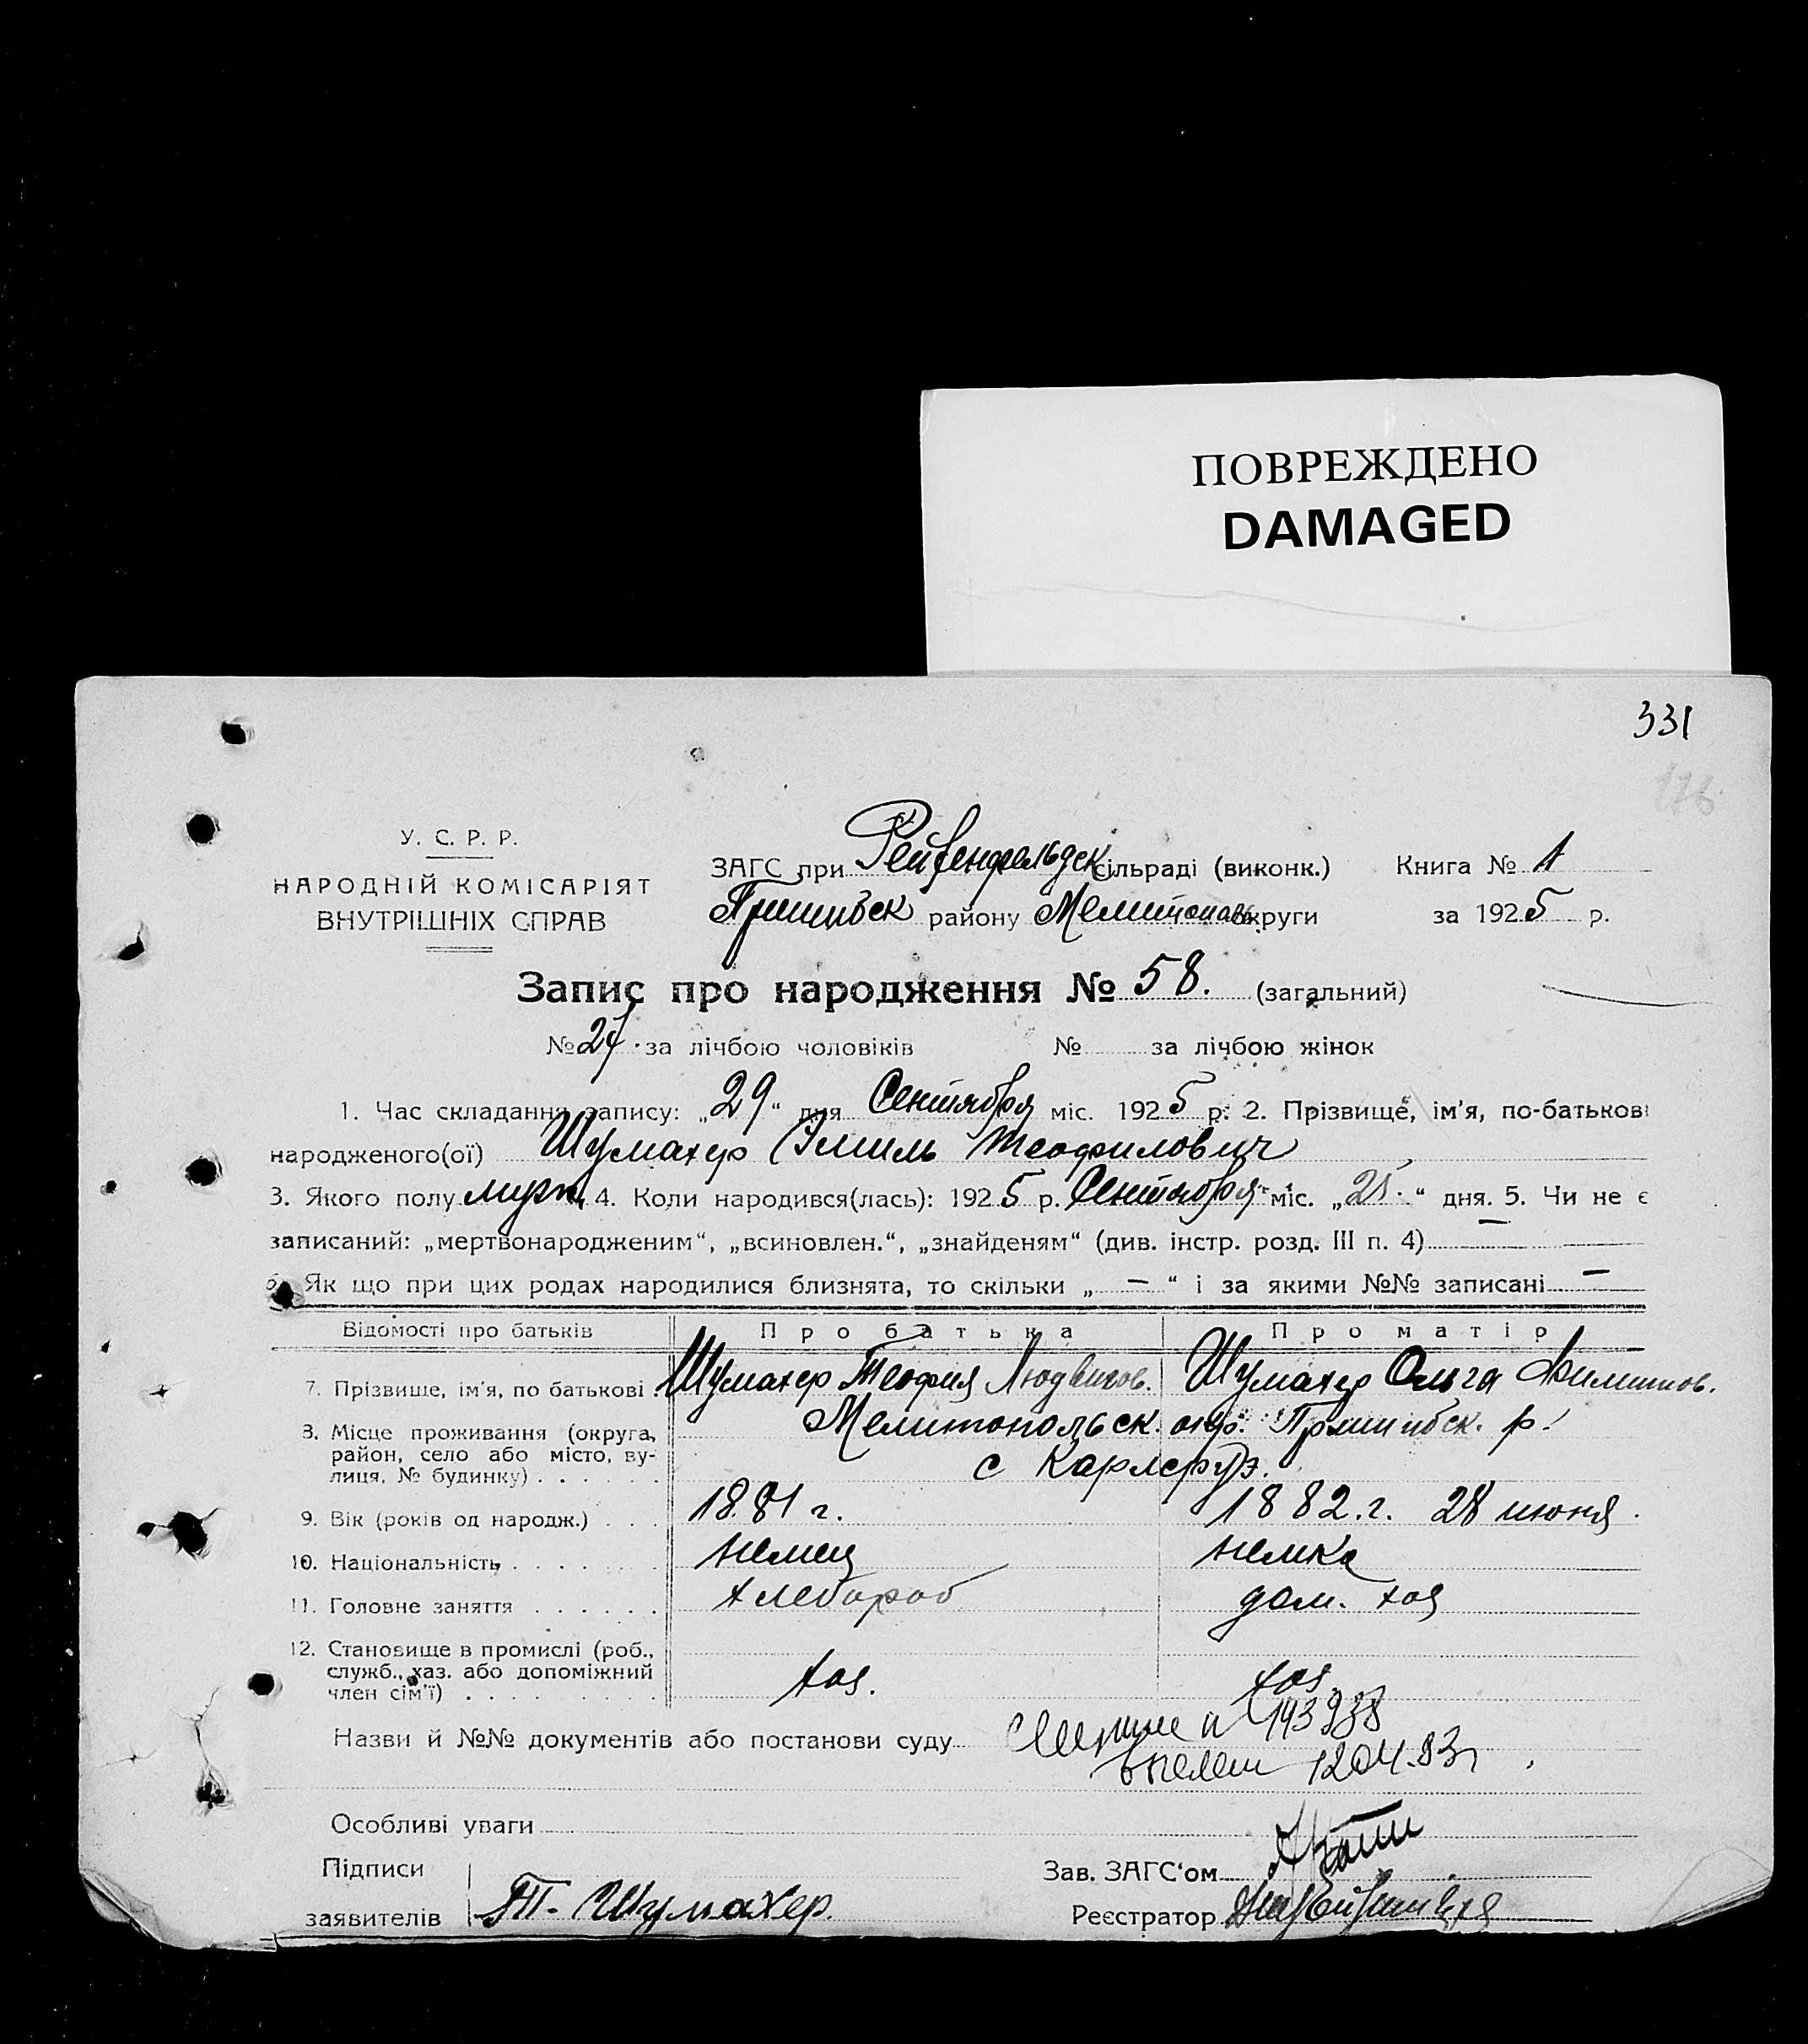 ПОВРЕЖДЕНО
DAMAGED
331
176.
У. С. Р. Р.
НАРОДНІЙ КОМІСАРІЯТ
ВНУТРІШНІХ СПРАВ
ЗАГС при Рейхенфельдск сільраді (виконк.) Книга № 1
Пришибск району Мелитополь округи за 1925 р.
Запис про народження № 58. (загальний)
№ 27. за лічбою чоловіків № за лічбою жінок
1. Час складання запису: „29“ дня Сентября міс. 1925 р. 2. Прізвище, ім’я, по-батькові
народженого(ої) Шумахер Эмиль Теофилович
3. Якого полу мужч. 4. Коли народився(лась): 1925 р. Сентября міс. „25.“ дня. 5. Чи не є
записаний: „мертвонародженим“, „всиновлен.“, „знайденям“ (див. інстр. розд. III п. 4) —
6. Як що при цих родах народилися близнята, то скільки „—“ і за якими №№ записані —
Відомості про батьків Про батька Про матір
7. Прізвище, ім’я, по батькові Шумахер Теофил Людвигов. Шумахер Ольга Филиппов.
8. Місце проживання (округа, Мелитопольск. окр. Пришибск. р.
район, село або місто, ву- с Карлсруэ.
лиця, № будинку)
9. Вік (років од народж.) 1881 г. 1882. г. 28 июня.
10. Національність немец немка
11. Головне заняття хлебороб дом. хоз
12. Становище в промислі (роб.,
служб., хаз. або допоміжний хоз. хоз
член сім’ї)
Назви й №№ документів або постанови суду 143938
1204.83г
Особливі уваги
Підписи Зав. ЗАГС‘ом
заявителів Т. Шумахер. Реєстратор